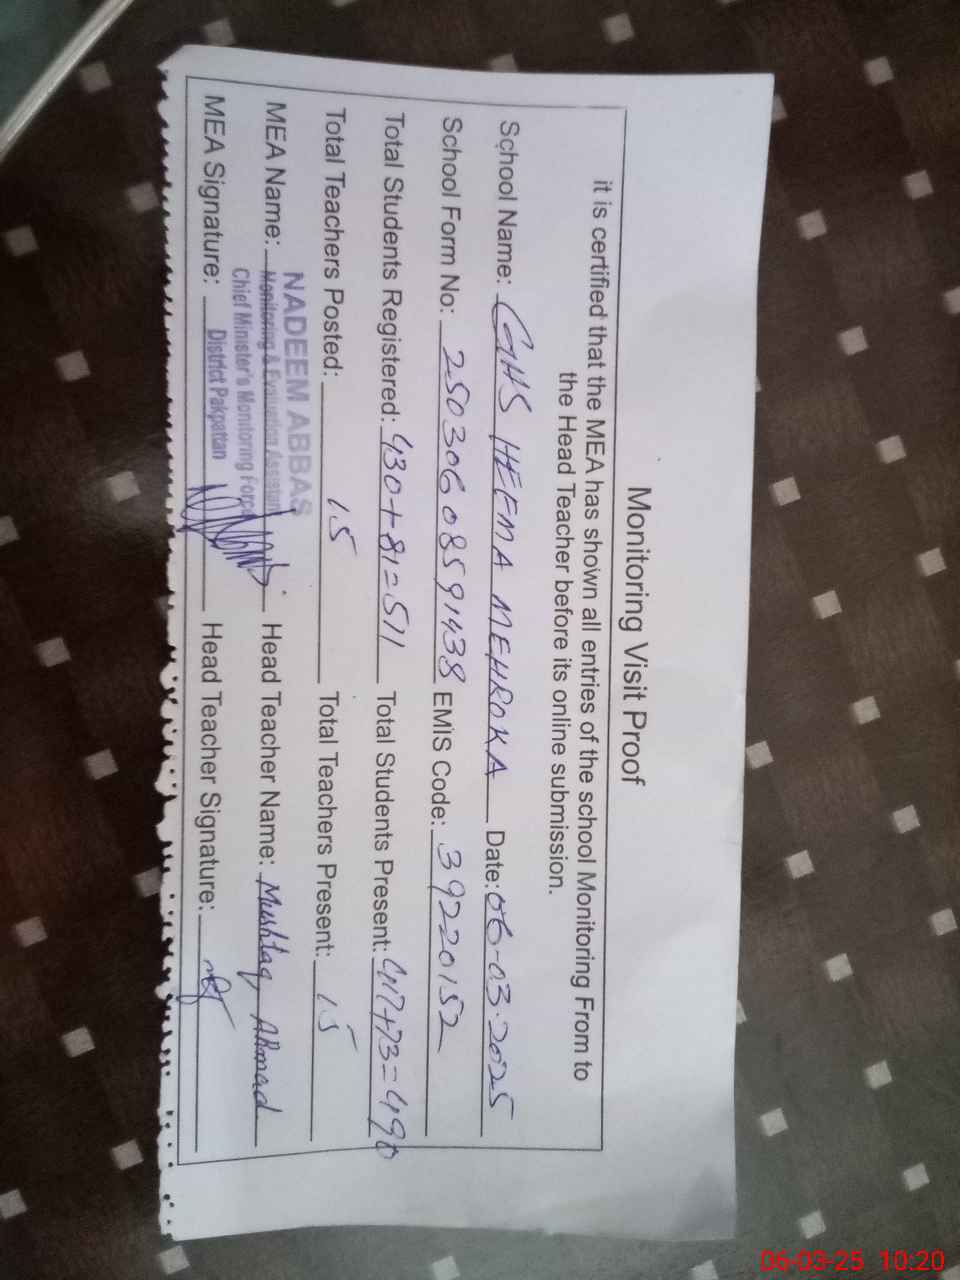 Monitoring Visit Proof
it is certified that the MEA has shown all entries of the school Monitoring From to
the Head Teacher before its online submission.
School Name: GHS HEEMA MEHROKA Date: 06-03-2025
School Form No: 25030608591438 EMIS Code: 39220152
Total Students Registered: 430+81=511 Total Students Present: 417+73=490
Total Teachers Posted: 15 Total Teachers Present: 15
NADEEM ABBAS
MEA Name: Monitoring & Evaluation Assistant Head Teacher Name: Mushtaq Ahmad
Chief Minister's Monitoring Force
MEA Signature: District Pakpattan Head Teacher Signature:
06-03-25 10:20